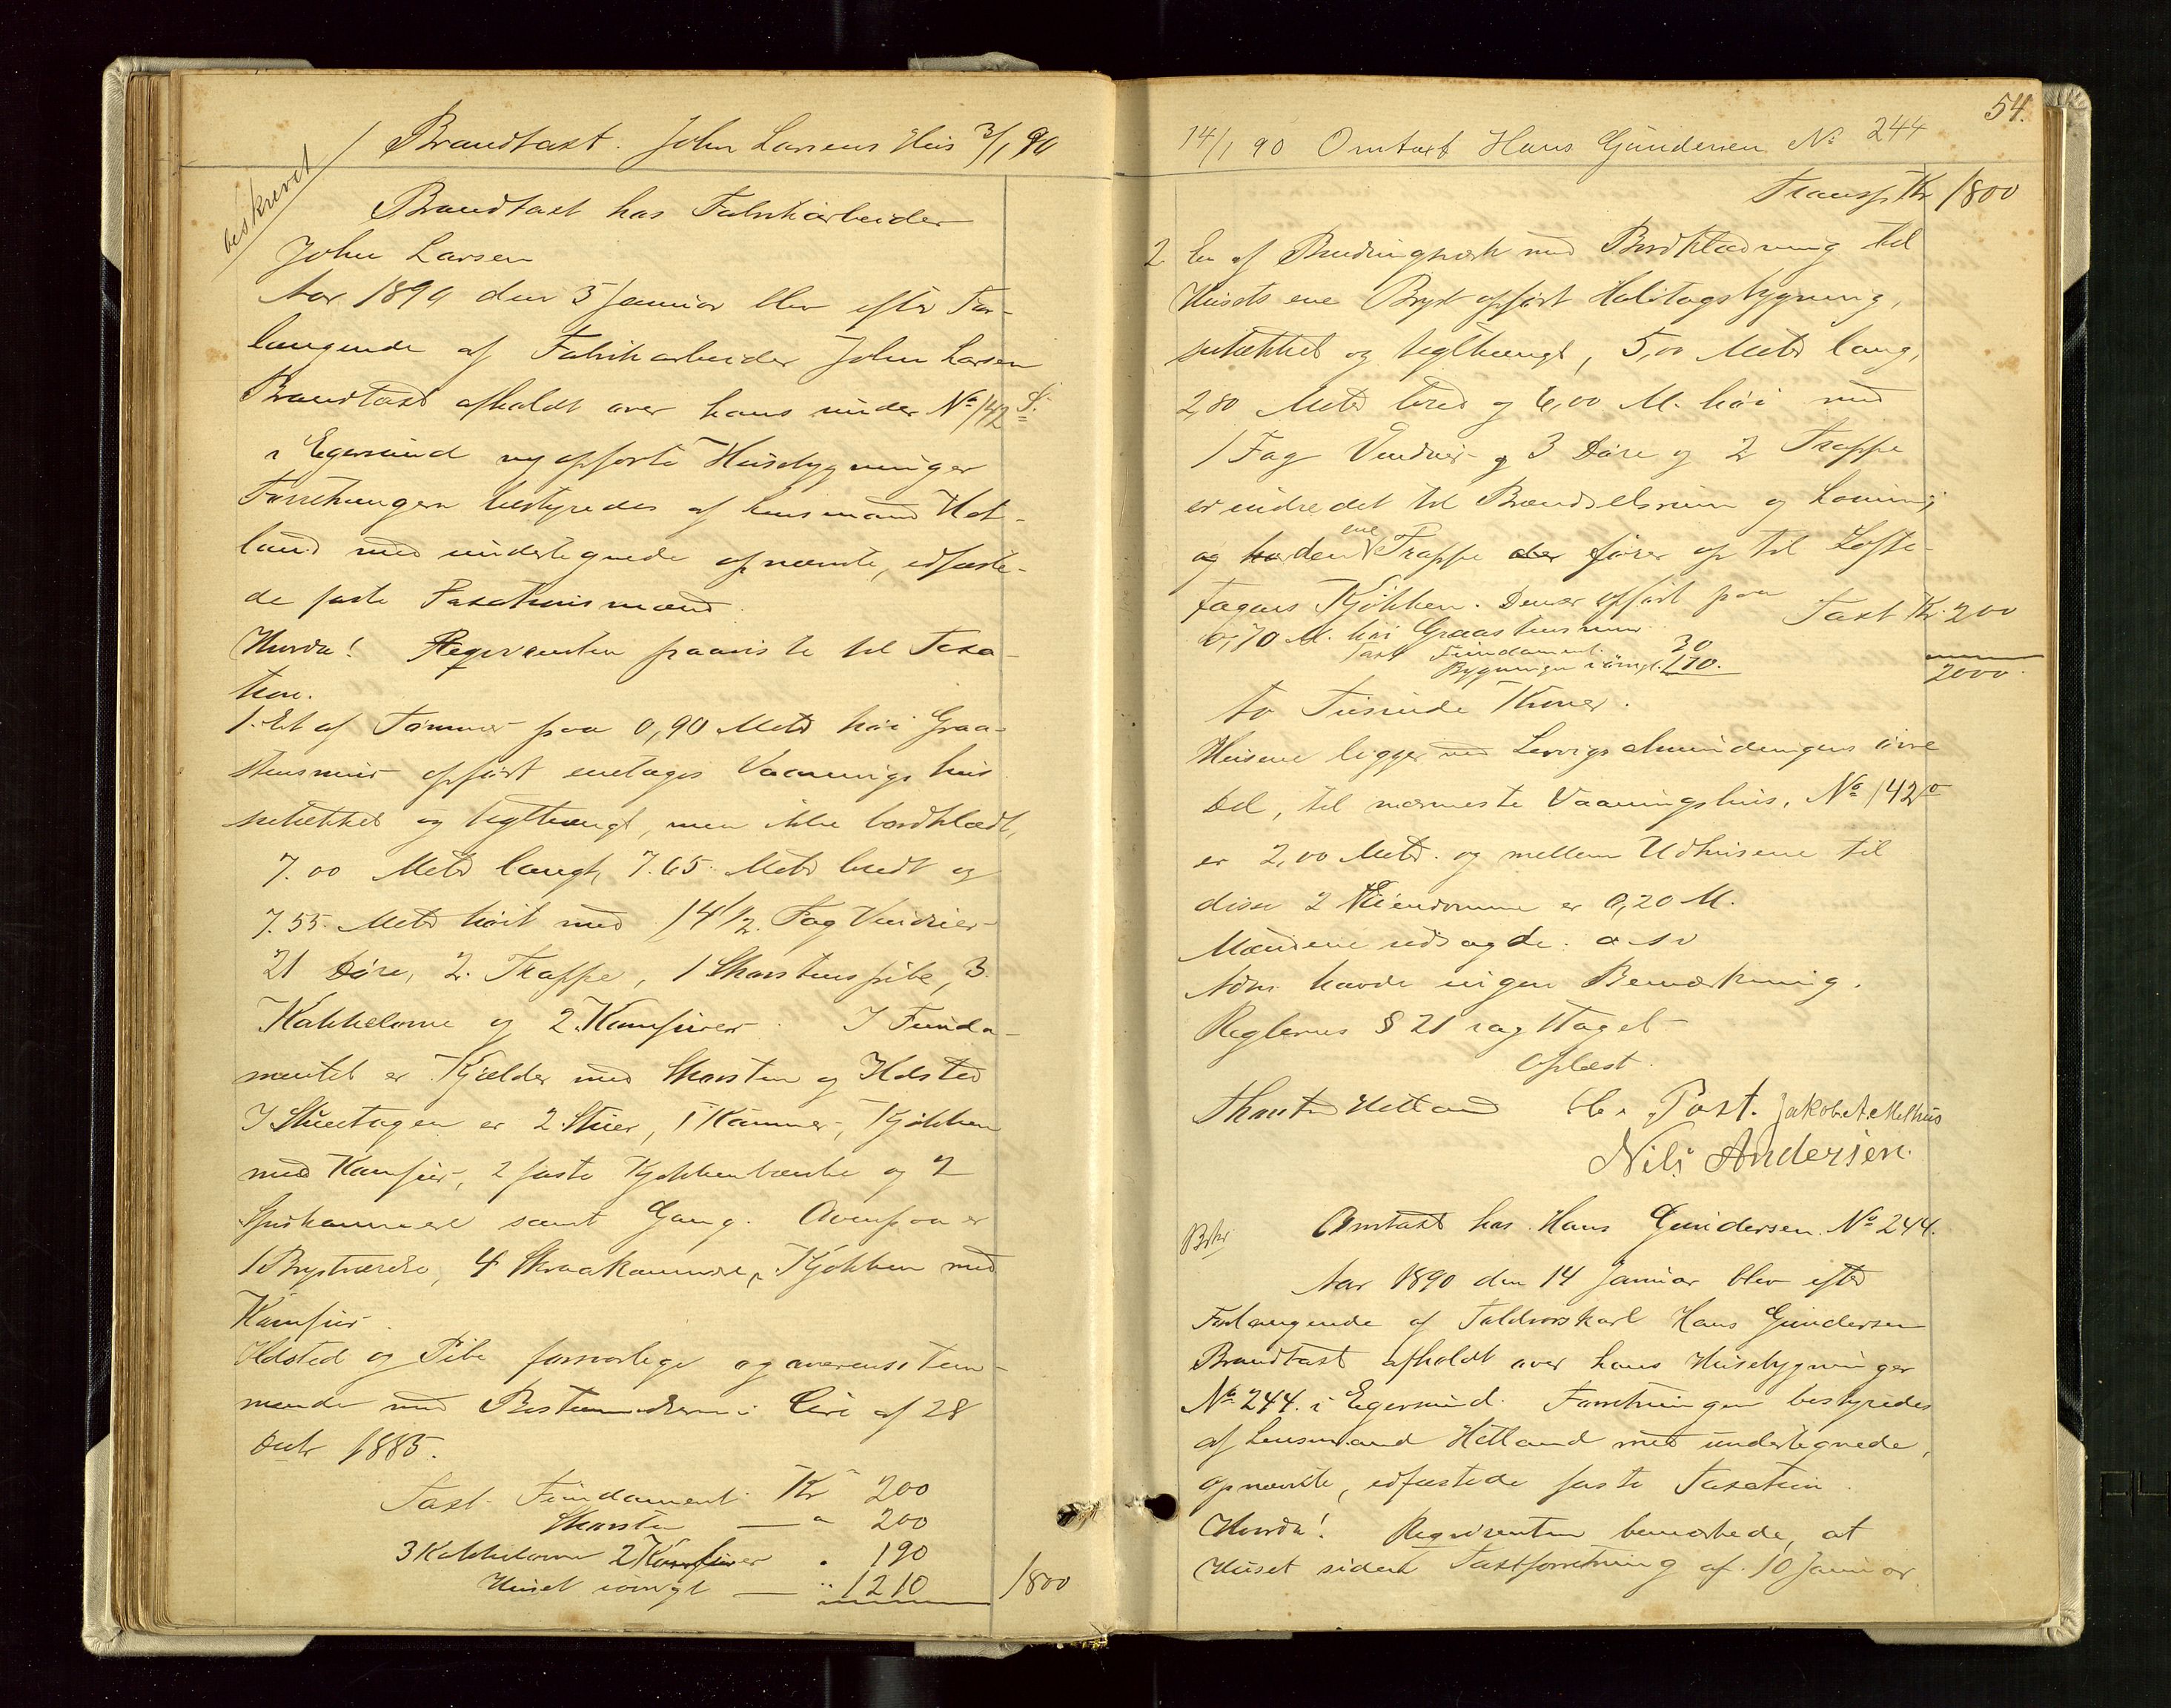 Brandtaxt. John Larsens Hus 3/1 90
beskrevet
Brandtaxt hos Fabrikarbeider
John Larsen
Aar 1890 den 3 Januar blev efter For-
langende af Fabrikarbeider John Larsen
Brandtaxt afholdt over hans under No 142 d.
i Egersund ny opførte Husebygninger
Forretningen bestyredes af Lensmand Het-
land med undertegnede opnævnte, edfæste-
de faste Taxationsmænd.
Hvorda! Reqvirenten paaviste til Taxa-
tion.
1. Et af Tømmer paa 0,90 Meter høi Graa-
stensmur opført enetages Vaaningshus
sutækket og teglhængt, men ikke bordklædt,
7.00 Meter langt, 7.65 Meter bredt og
7.55 Meter høit med 14 1/2 Fag Vinduer
21 Døre, 2 Trappe, 1 Skorstenspibe, 3
Kakkelovne og 2 Komfurer. I Funda-
mentet er Kjelder med Skorsten og Ildsted
I Stueetagen er 2 Stuer, 1 Kammer, Kjøkken
med Komfur, 2 faste Kjøkkenbænke og 2
Spiskammere samt Gang. Ovenpaa er
4 Skraakammere, Kjøkken med
Komfur.
Ildsted og Pibe forsvarlige og overensstem-
mende med Bestemmelserne i Circ af 28
Octr 1885.
Taxt Fundament Kr 200
Skorsten — " 200
3 Kakkelovne 2 Komfurer " 190
Huset iøvrigt — " 1210 1800
54.
14/1 90 Omtaxt Hans Gundersen No 244
Transp. Kr 1800
2 En af Bindingsværk med Bordklædning til
Husets ene Bryst opført Halvtagsbygning,
sutækket og teglhængt, 5,00 Meter lang,
2,80 Meter bred og 6,00 M. høi med
1 Fag Vinduer og 3 Døre og 2 Trappe
er indredet til Brændselsrum og
og den ene Trappe fører op til Lofts-
etagens Kjøkken. Den er opført paa Taxt Kr. 200
0,70 M. høi Graastensmur
Taxt Fundament. 30
Bygningen iøvrigt. 170. 2000.
to Tusinde Kroner.
Husene ligger ved Lervigsalmindingens øvre
Del, til nærmeste Vaaningshus, No 142
er 2,00 Meter. og mellem Udhusene til
disse 2 Eiendomme er 0,20 M.
Mændene udsagde: a. s. v.
Adm. havde ingen Bemærkning.
Reglernes § 21 iagttaget
Oplæst.
Thorsten Hetland Post. Jakob A. Melhus
Nils Andersen.
Bskr
Omtaxt hos Hans Gundersen No 244.
Aar 1890 den 14 Januar blev efter
Forlangende af Toldroerskarl Hans Gundersen
Brandtaxt afholdt over hans Husebygninger
No 244. i Egersund. Forretningen bestyredes
af Lensmand Hetland med undertegnede,
opnævnte, edfæstede faste Taxatm.
Hvorda! Reqvirenten bemærkede, at
Huset siden Taxtforretning af 10 Januar